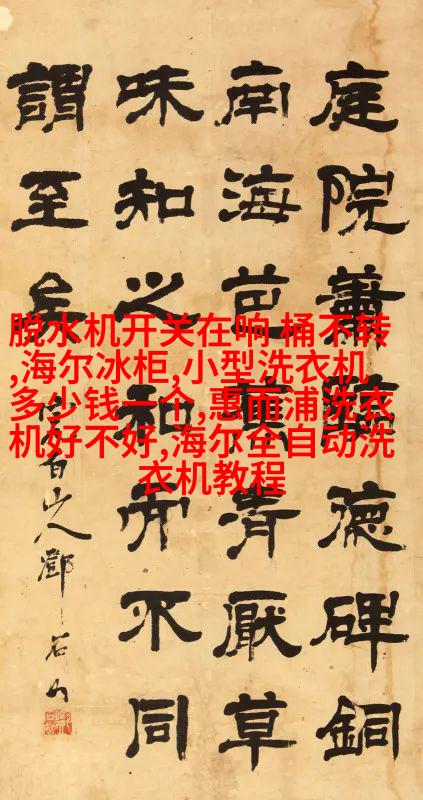 庭院蕭德碑銅
南海芭蕉清厭草
味知之和不同
謂至矣
完白山人鄧石如
脱水机开关在响 桶不转
,海尔冰柜,小型洗衣机
多少钱一个,惠而浦洗衣
机好不好,海尔全自动洗
衣机教程